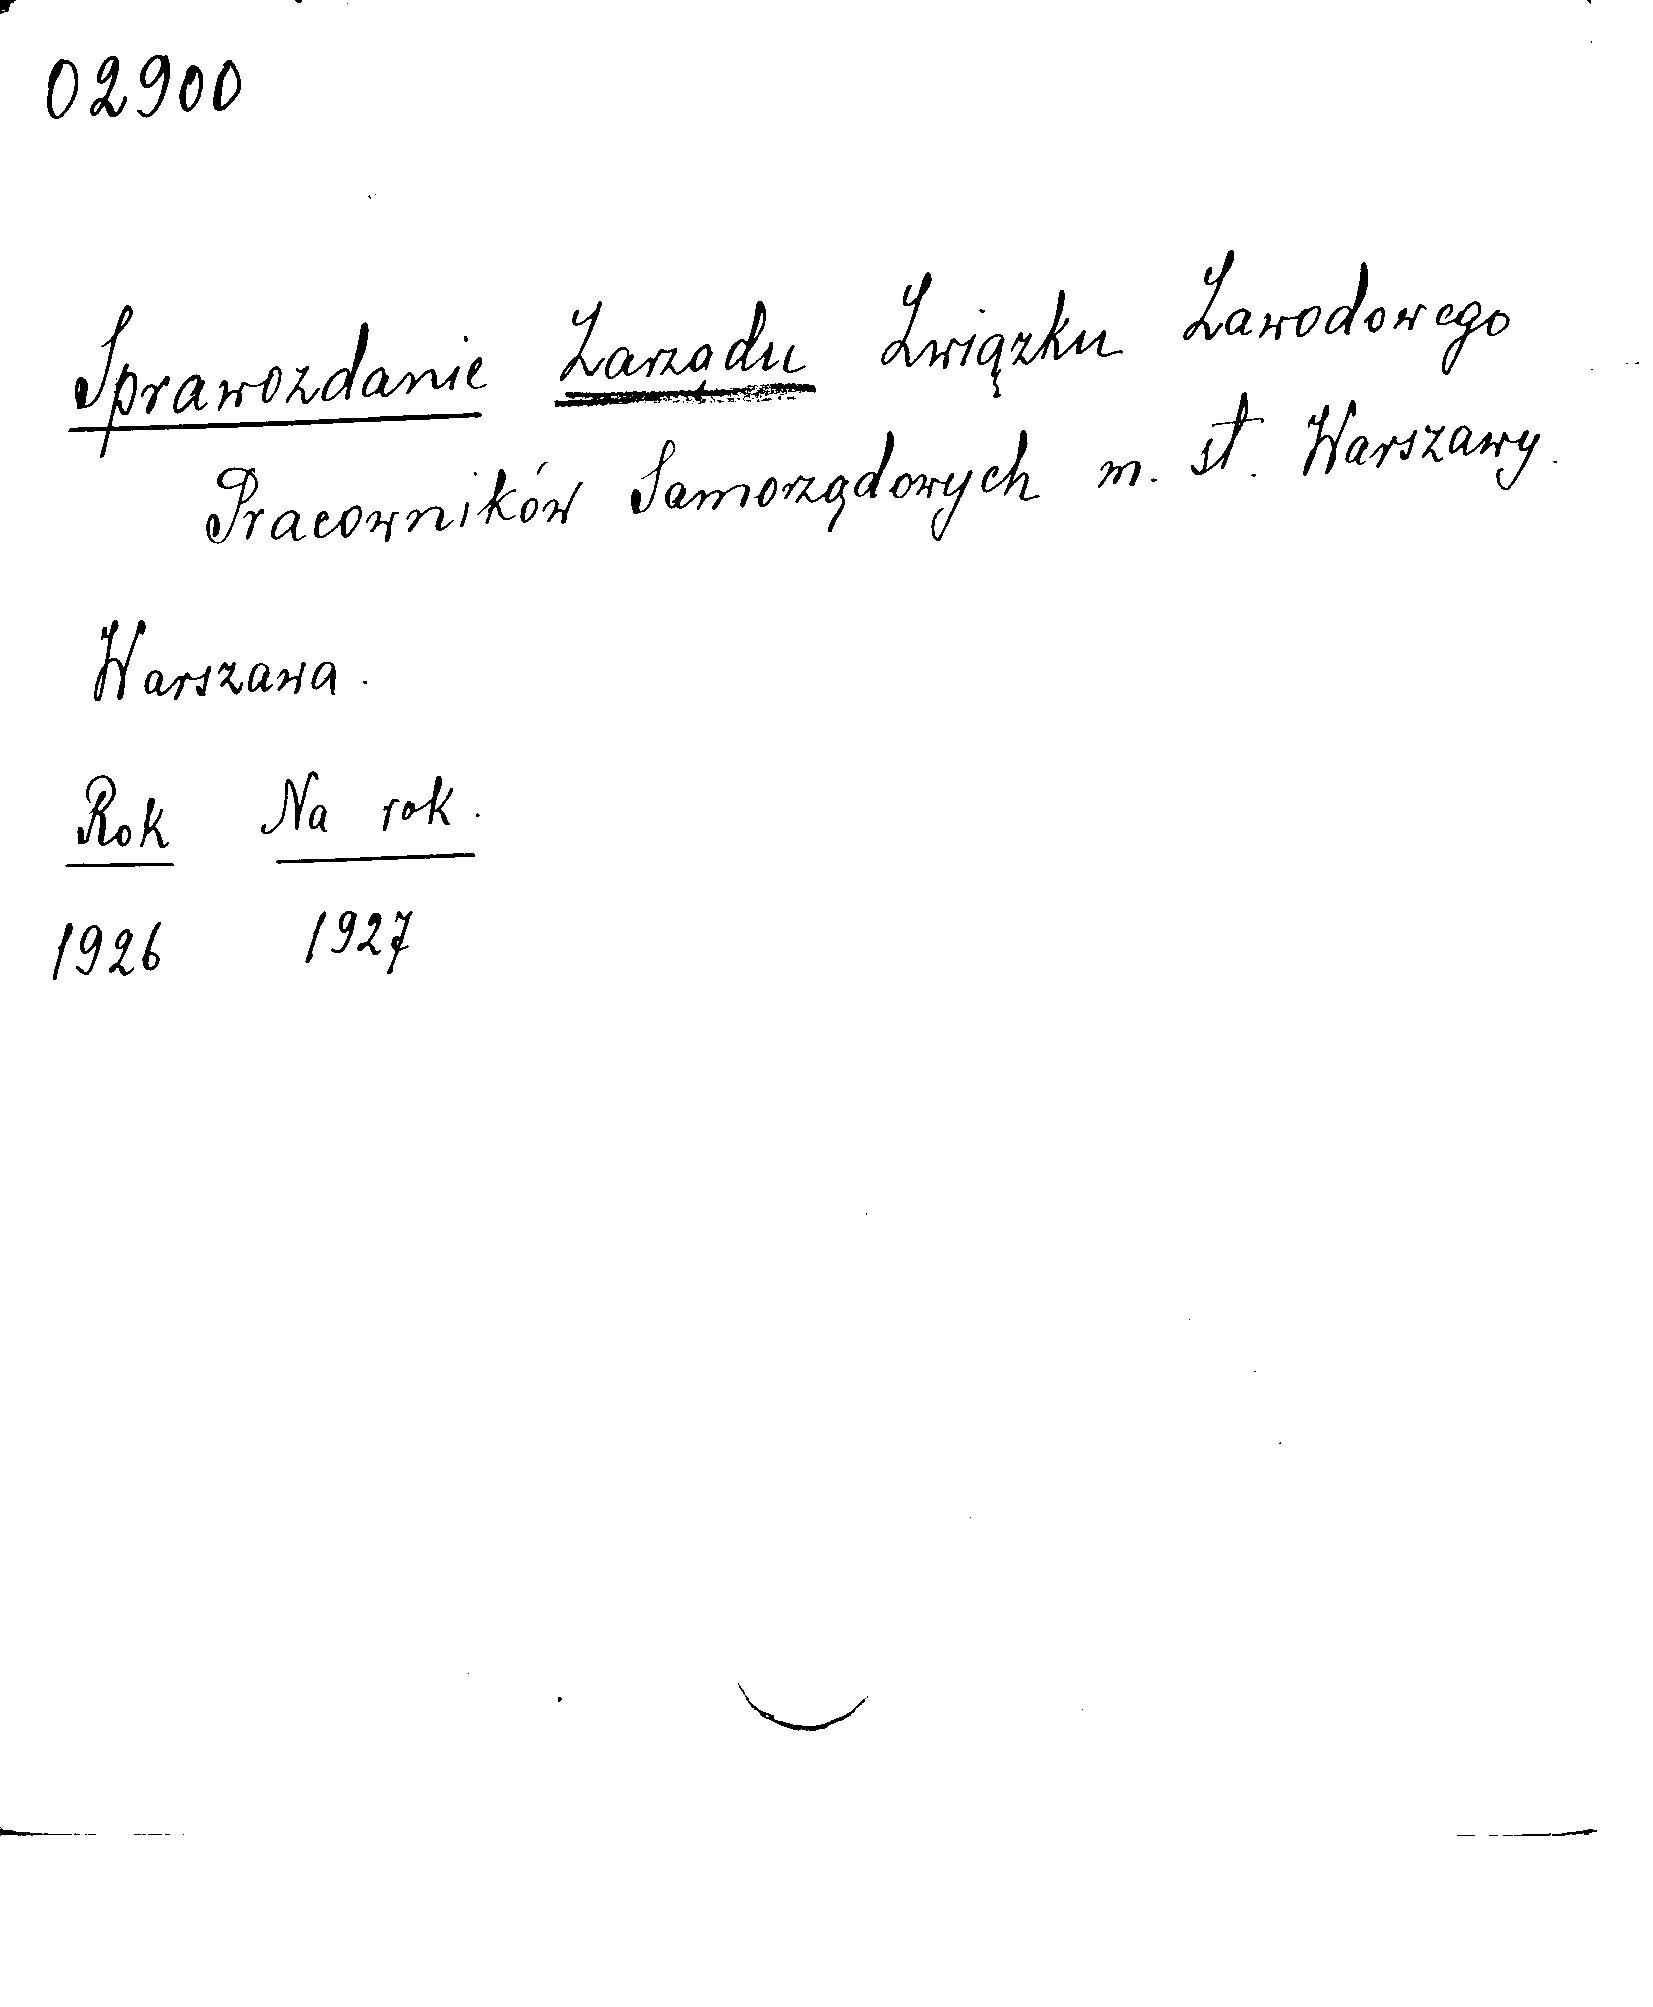 02900
Sprawozdanie Zarządu Związku Zawodowego
Pracowników Samorządowych m. st. Warszawy.
Warszawa.
Rok Na rok.
1926 1927